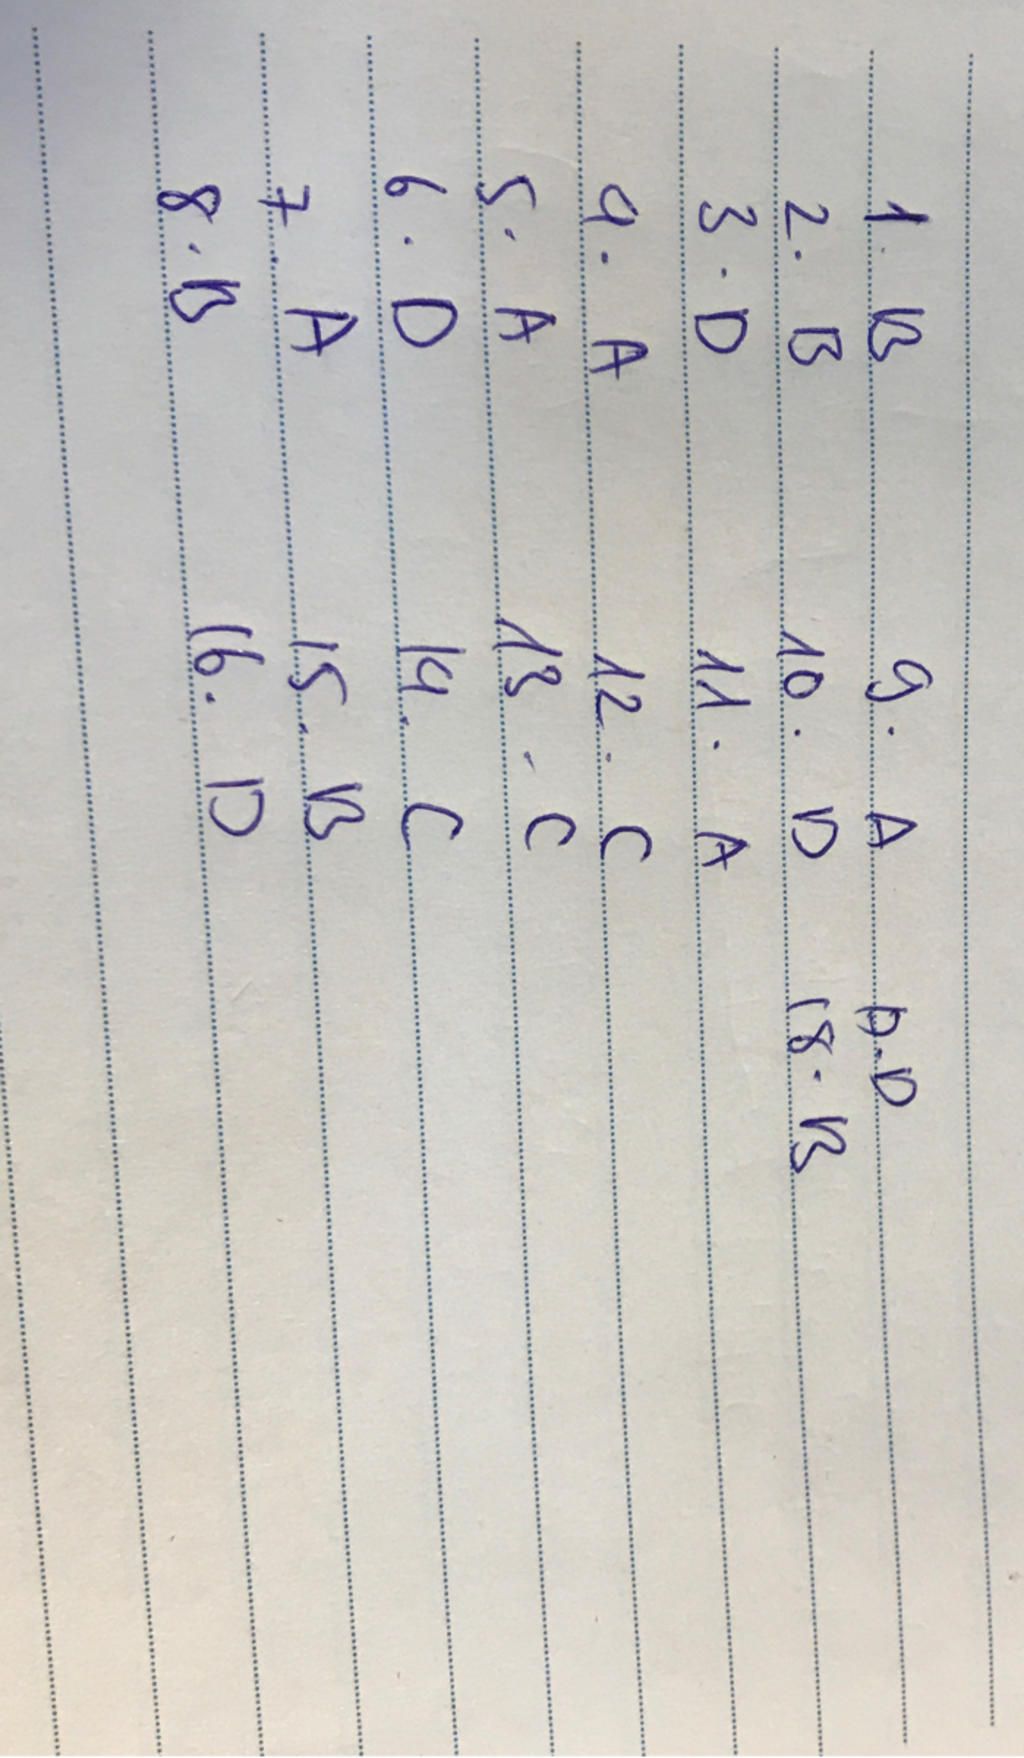 1. B
2. B
3. D
4. A
5. A
6. D
7. A
8. B
9. A
10. D
11. A
12. C
13. C
14. C
15. B
16. D
17. D
18. B